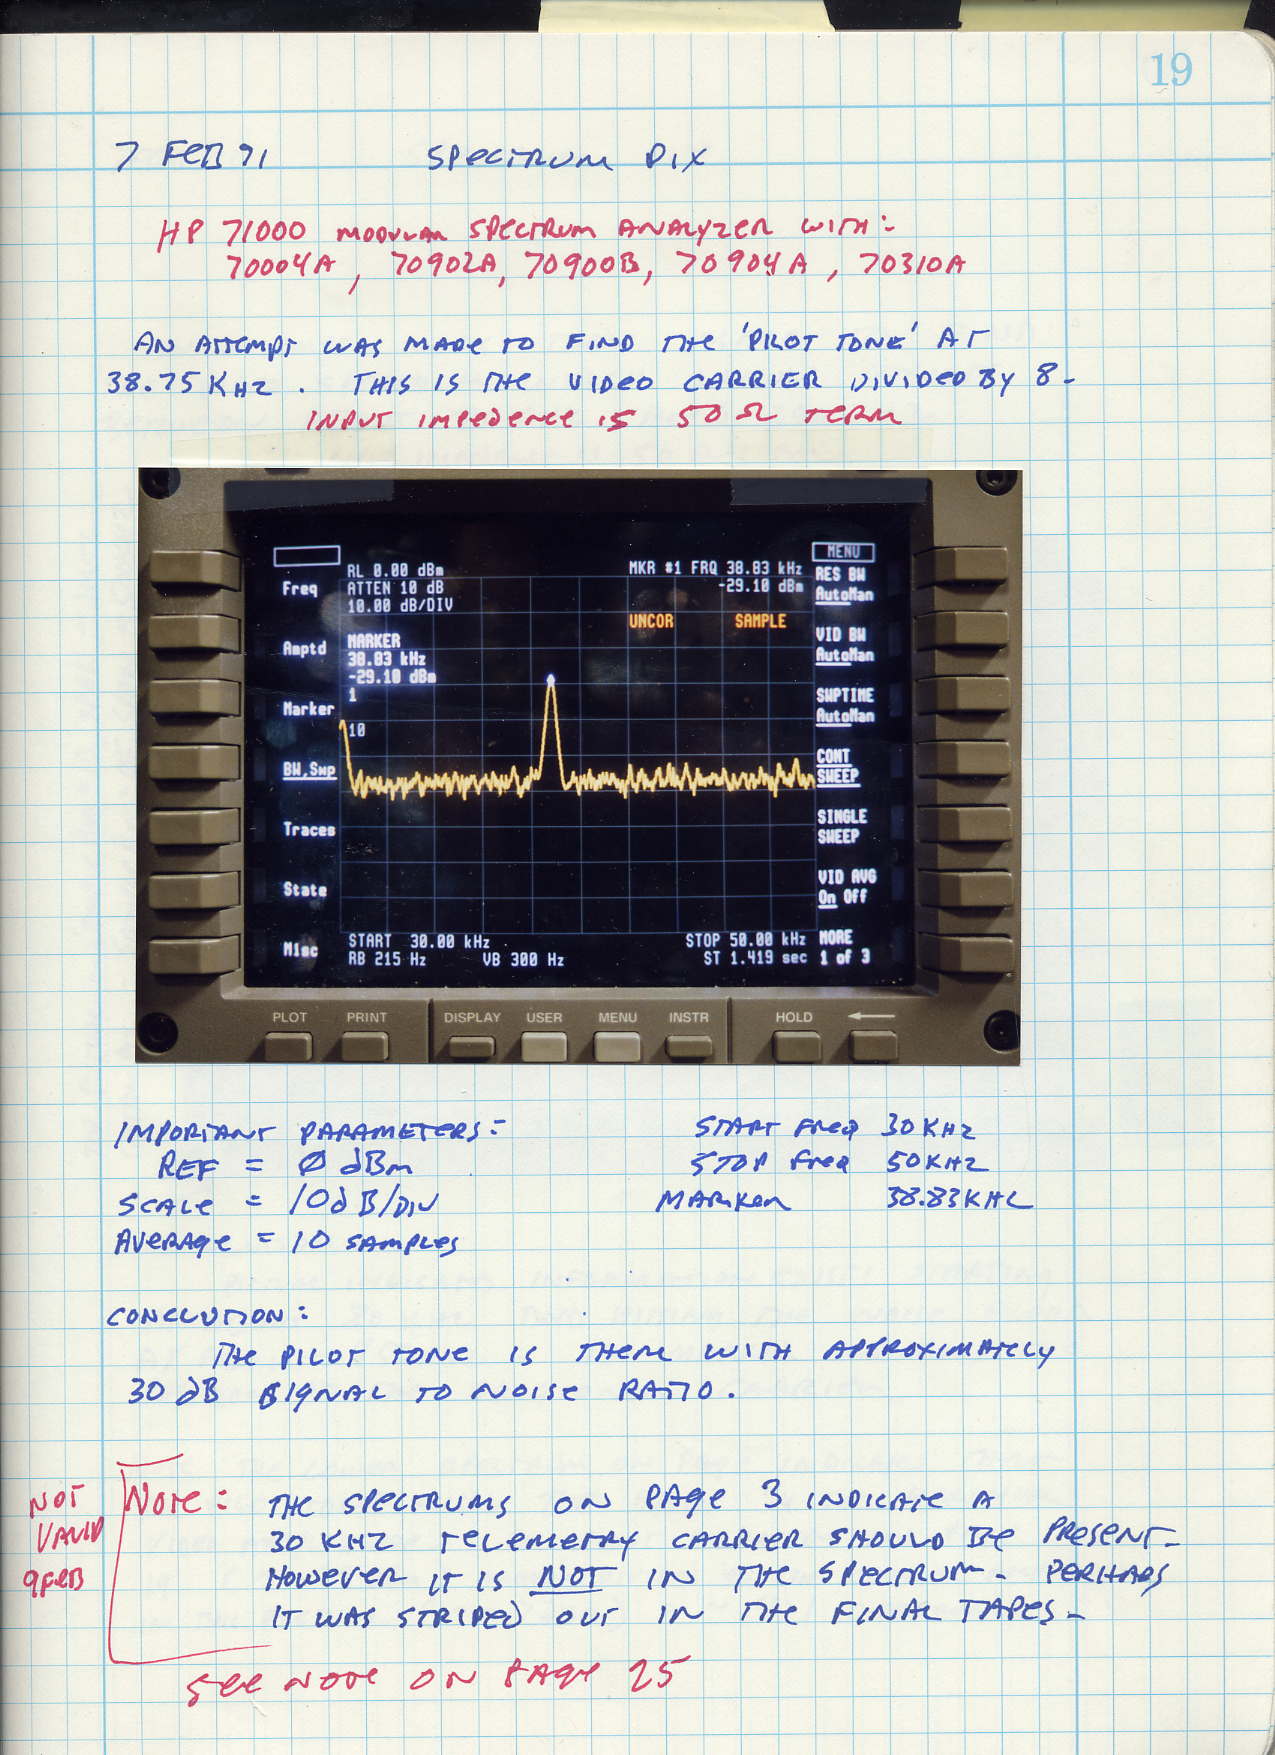 19
7 FEB 91 SPECTRUM PIX
HP 71000 MODULAR SPECTRUM ANALYZER WITH:
70004A, 70902A, 70900B, 70904A, 70310A
AN ATTEMPT WAS MADE TO FIND THE 'PILOT TONE' AT
38.75 KHZ. THIS IS THE VIDEO CARRIER DIVIDED BY 8.
INPUT IMPEDENCE IS 50 Ω TERM
MENU
RL 0.00 dBm MKR #1 FRQ 38.83 kHz
RES BW
Freq ATTEN 10 dB -29.10 dBm AutoMan
10.00 dB/DIV
UNCOR SAMPLE
VID BW
Amptd MARKER AutoMan
38.83 kHz
-29.10 dBm
1 SWPTIME
Marker AutoMan
10
BW,Swp CONT
SWEEP
Traces SINGLE
SWEEP
State VID AVG
On Off
START 30.00 kHz STOP 50.00 kHz MORE
Misc RB 215 Hz VB 300 Hz ST 1.419 sec 1 of 3
PLOT PRINT DISPLAY USER MENU INSTR HOLD
IMPORTANT PARAMETERS: START FREQ 30 KHZ
REF = Ø dBm STOP FREQ 50 KHZ
SCALE = 10dB/DIV MARKER 38.83 KHZ
AVERAGE = 10 SAMPLES
CONCLUTION:
THE PILOT TONE IS THERE WITH APPROXIMATELY
30 dB SIGNAL TO NOISE RATIO.
NOT
VALID
9 FEB
NOTE: THE SPECTRUMS ON PAGE 3 INDICATE A
30 KHZ TELEMETRY CARRIER SHOULD BE PRESENT.
HOWEVER IT IS NOT IN THE SPECTRUM. PERHAPS
IT WAS STRIPED OUT IN THE FINAL TAPES.
SEE NOTE ON PAGE 25